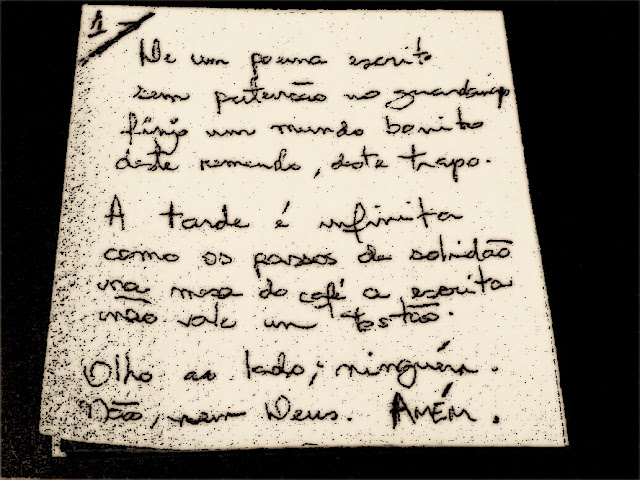 1
De um poema escrito
sem pretensão no guardanap
finjo um mundo bonito
deste remendo, deste trapo.
A tarde é infinita
como os passos da solidão
na mesa do café a escrita
não vale um tostão.
Olho ao lado; ninguém.
Não, nem Deus. AMÉM.